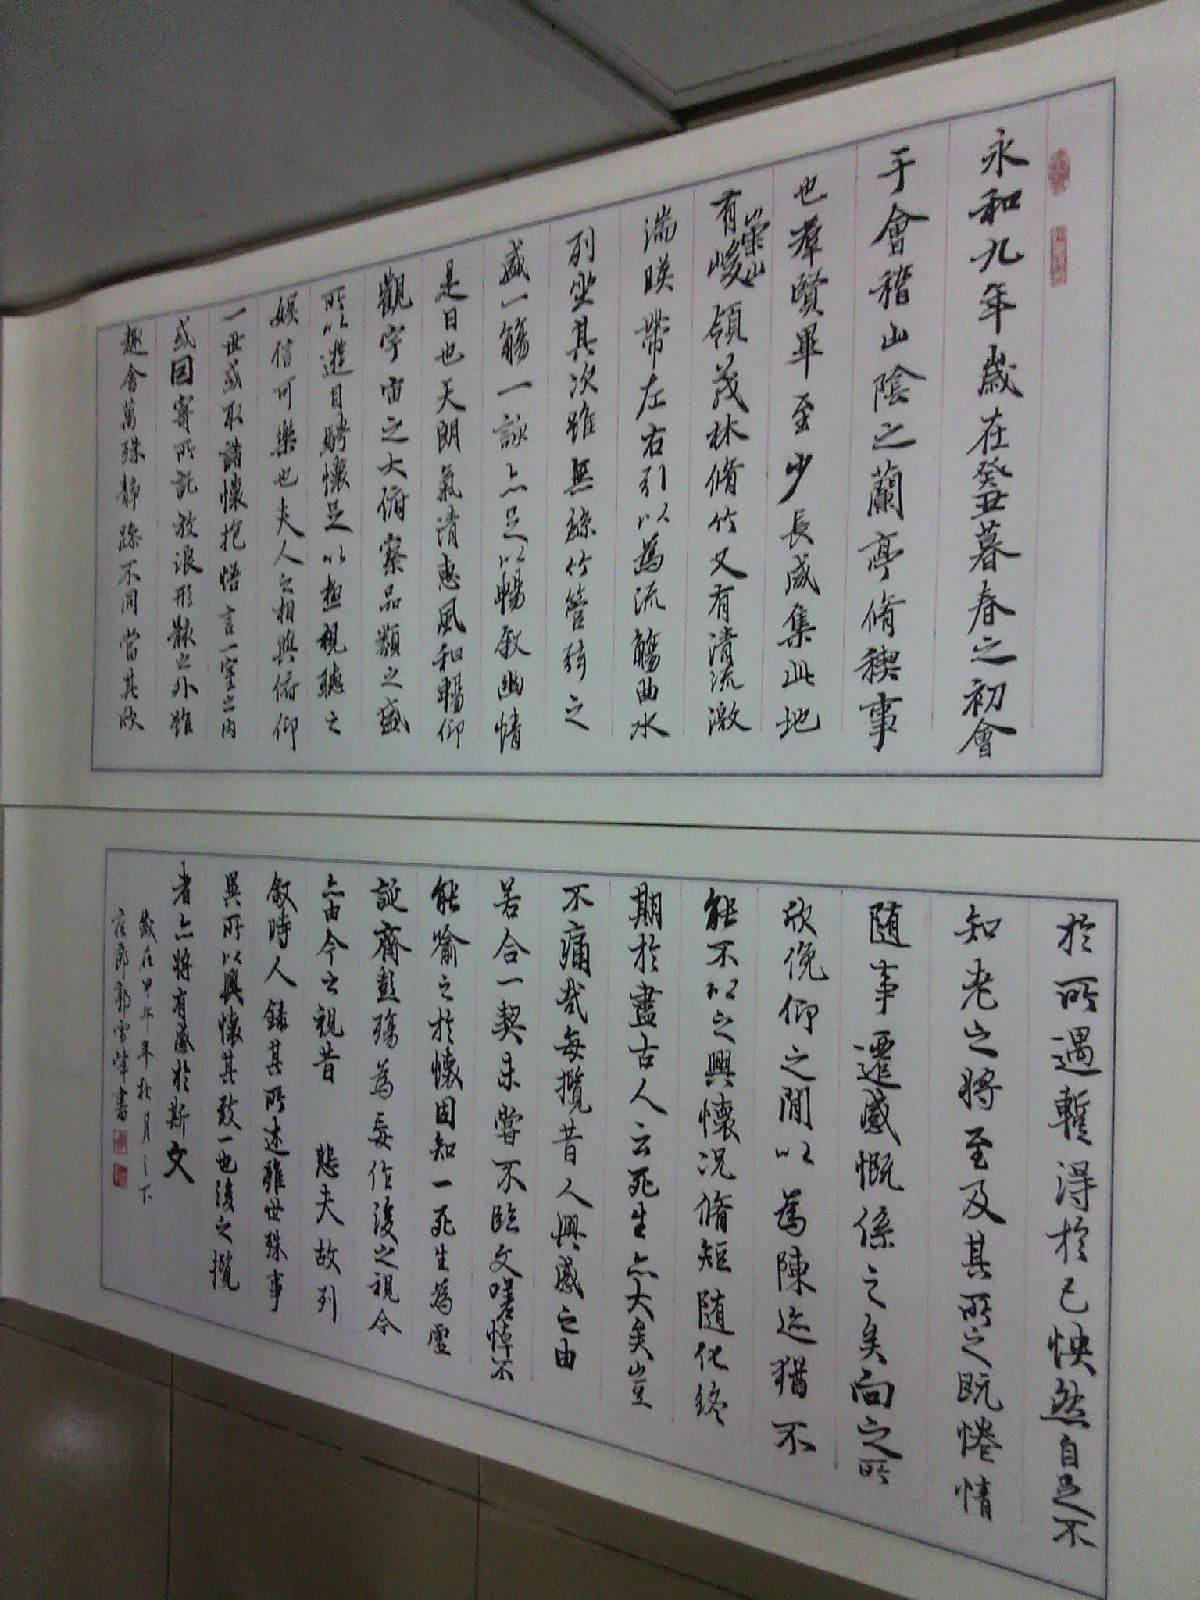 永和九年歲在癸丑暮春之初會
于會稽山陰之蘭亭脩稧事
也羣賢畢至少長咸集此地
有崇山峻領茂林脩竹又有清流激
湍暎帶左右引以為流觴曲水
列坐其次雖無絲竹管弦之
盛一觴一詠亦足以暢敘幽情
是日也天朗氣清惠風和暢仰
觀宇宙之大俯察品類之盛
所以遊目騁懷足以極視聽之
娛信可樂也夫人之相與俯仰
一世或取諸懷抱悟言一室之內
或因寄所託放浪形骸之外雖
趣舍萬殊靜躁不同當其欣
於所遇暫得於己怏然自足不
知老之將至及其所之既惓情
隨事遷感慨係之矣向之所
欣俛仰之閒以為陳迹猶不
能不以之興懷況脩短隨化終
期於盡古人云死生亦大矣豈
不痛哉每攬昔人興感之由
若合一契未嘗不臨文嗟悼不
能喻之於懷固知一死生為虛
誕齊彭殤為妄作後之視今
亦由今之視昔 悲夫故列
敘時人錄其所述雖世殊事
異所以興懷其致一也後之攬
者亦將有感於斯文
歲在甲午年秋月之下